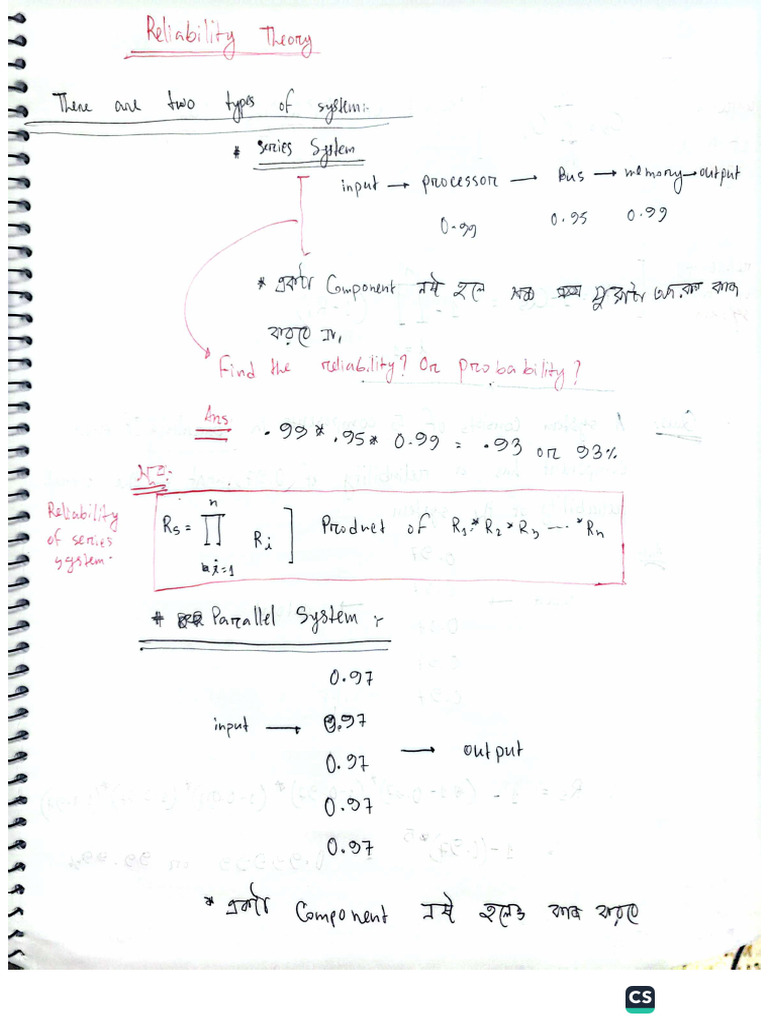 Reliability Theory
There are two types of system:-
* Series System
input → processor → Bus → memory → output
0.99 0.95 0.99
* একটা Component নষ্ট হলে পুরোটা কাজ
করবে না।
Find the reliability? Or probability?
Ans
.99 * .95 * 0.99 = .93 or 93%
সূত্র:-
Reliability of series system.
Rs = ∏ Ri ] Product of R1 * R2 * R3 ---- * Rn
n
i=1
* Parallel System :-
0.97
input → 0.97
0.97 → output
0.97
0.97
* একটা Component নষ্ট হলেও কাজ করবে
CS